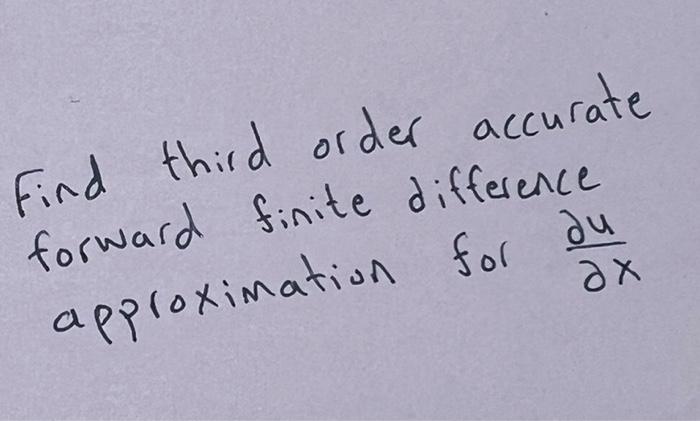 Find third order accurate
forward finite difference
approximation for ∂u/∂x